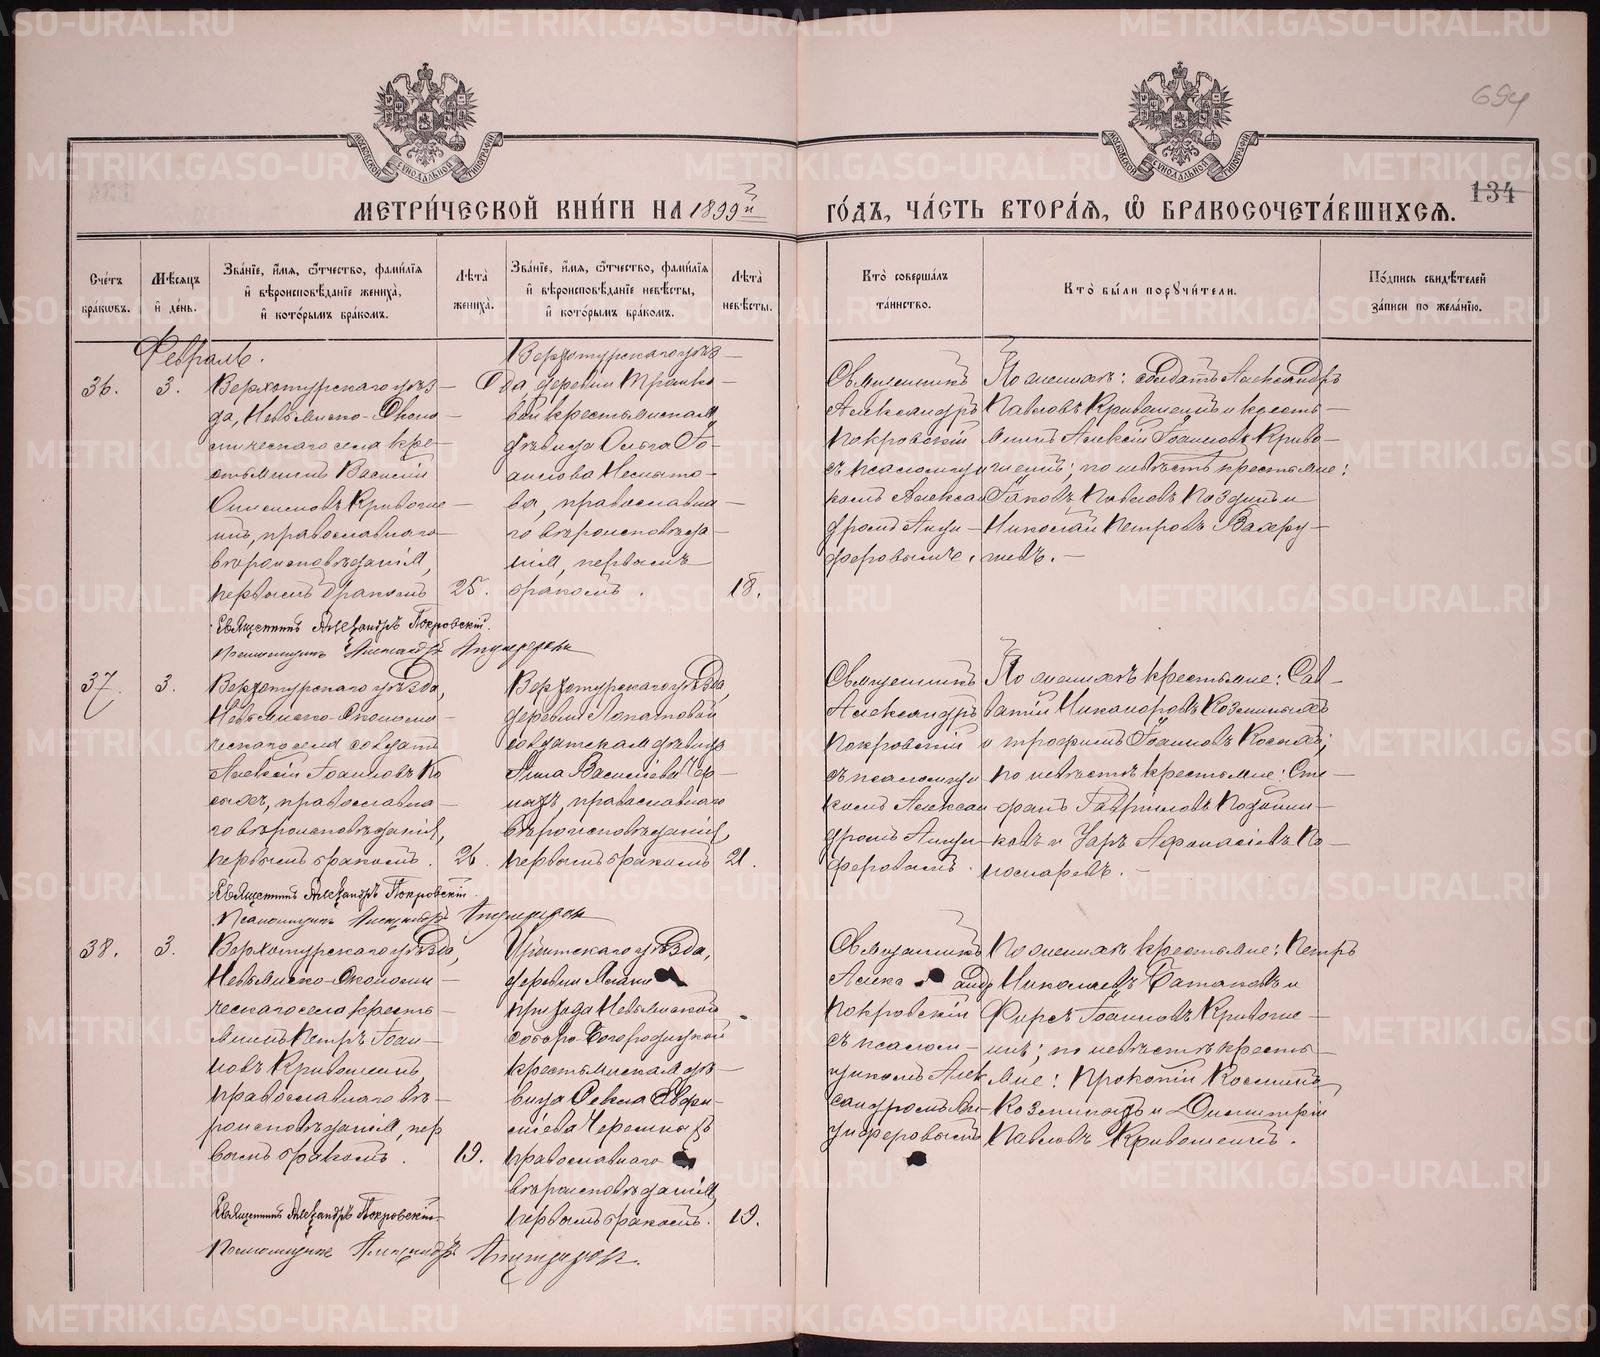 694
134
МЕТРИ́ЧЕСКОЙ КНИ́ГИ НА 1899й ГО́ДЪ, ЧА́СТЬ ВТОРА́Я, Ѿ БРАКОСОЧЕТА́ВШИХСЯ.
Сче́тъ бра́кѡвъ.
Мѣ́сяцъ и҆ де́нь.
Зва́нїе, и҆́мя, ѻ҆́тчество, фами́лїя и҆ вѣроисповѣ́данїе жениха̀, и҆ кото́рымъ бра́комъ.
Лѣта̀ жениха̀.
Зва́нїе, и҆́мя, ѻ҆́тчество, фами́лїя и҆ вѣроисповѣ́данїе невѣ́сты, и҆ кото́рымъ бра́комъ.
Лѣта̀ невѣ́сты.
Кто̀ соверша́лъ та́инство.
Кто̀ бы́ли порꙋчи́тели.
По́дпись свидѣ́телей за́писи по жела́нїю.
Февраль.
36.
3.
Верхотурскаго уѣз-
да, Невьянско-Эконо-
мическаго села кре-
стьянинъ Василій
Кривоше-
инъ, православнаго
вѣроисповѣданія,
первымъ бракомъ
25.
Верхотурскаго уѣз-
да, деревни
вой крестьянская
дѣвица Ольга Іо-
аннова
ва, православна-
го вѣроисповѣда-
нія, первымъ
бракомъ.
18.
Священникъ
Александръ
Покровскій
съ псаломщи
комъ Алексан
дромъ Анци-
феровымъ.
По женихѣ: солдатъ Александръ
Павловъ Кривошеинъ и кресть-
янинъ Алексій Іоанновъ Криво-
шеинъ; по невѣстѣ крестьяне:
Іаковъ Павловъ Поздинъ и
Николай Петровъ
Священникъ Александръ Покровскій.
Псаломщикъ Александръ Анцыферовъ
37.
3.
Верхотурскаго уѣзда,
Невьянско-Экономи-
ческаго села солдатъ
Алексій Іоанновъ Ко
сыхъ, православна-
го вѣроисповѣданія,
первымъ бракомъ.
26.
Верхотурскаго уѣзда,
деревни Лопатовой
солдатская дѣвица
Анна Василіева Чер-
ныхъ, православнаго
вѣроисповѣданія,
первымъ бракомъ
21.
Священникъ
Александръ
Покровскій
съ псаломщи
комъ Алексан
дромъ Анци-
феровымъ.
По женихѣ крестьяне: Сав-
ватій Никаноровъ Козминыхъ
и Трофимъ Іоанновъ Косыхъ;
по невѣстѣ крестьяне: Сте-
фанъ Гавриловъ
ковъ и Уаръ Афанасіевъ По-
номаревъ.
Священникъ Александръ Покровскій
Псаломщикъ Александръ Анцыферовъ
38.
3.
Верхотурскаго уѣзда,
Невьянско-Экономи-
ческаго села кресть-
янинъ Петръ Іоан-
новъ Кривошеинъ,
православнаго вѣ-
роисповѣданія, пер
вымъ бракомъ.
19.
Ирбитскаго уѣзда,
деревни
прихода Невьянской
Соборо-Богородицкой
крестьянская дѣ-
вица Ѳекла Евфи-
міева Черемныхъ
православнаго
вѣроисповѣданія
первымъ бракомъ.
19.
Священникъ
Алекса андр
Покровскій
съ псалом-
щикомъ Алек
сандромъ Ан-
циферовымъ
По женихѣ крестьяне: Петръ
Николаевъ Батаковъ и
Фирсъ Іоанновъ Кривоше-
инъ; по невѣстѣ кресть-
яне: Прокопій Косминъ
Козминыхъ и Димитрій
Павловъ Кривошеинъ.
Священникъ Александръ Покровскій
Псаломщикъ Александръ Анцыферовъ.
METRIKI.GASO-URAL.RU